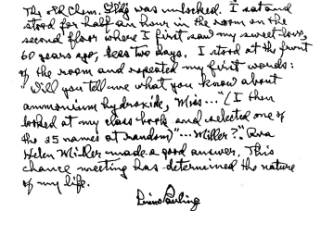 The old Chem. Bldg was unlocked. I sat and
stood for half an hour in the room on the
second floor where I first saw my sweet love,
60 years ago, less two days. I stood at the front
of the room and repeated my first words:
"Will you tell me what you know about
ammonium hydroxide, Miss..." (I then
looked at my class book and selected one of
the 25 names at random) "...Miller?" Ava
Helen Miller made a good answer. This
chance meeting has determined the nature
of my life.
Linus Pauling